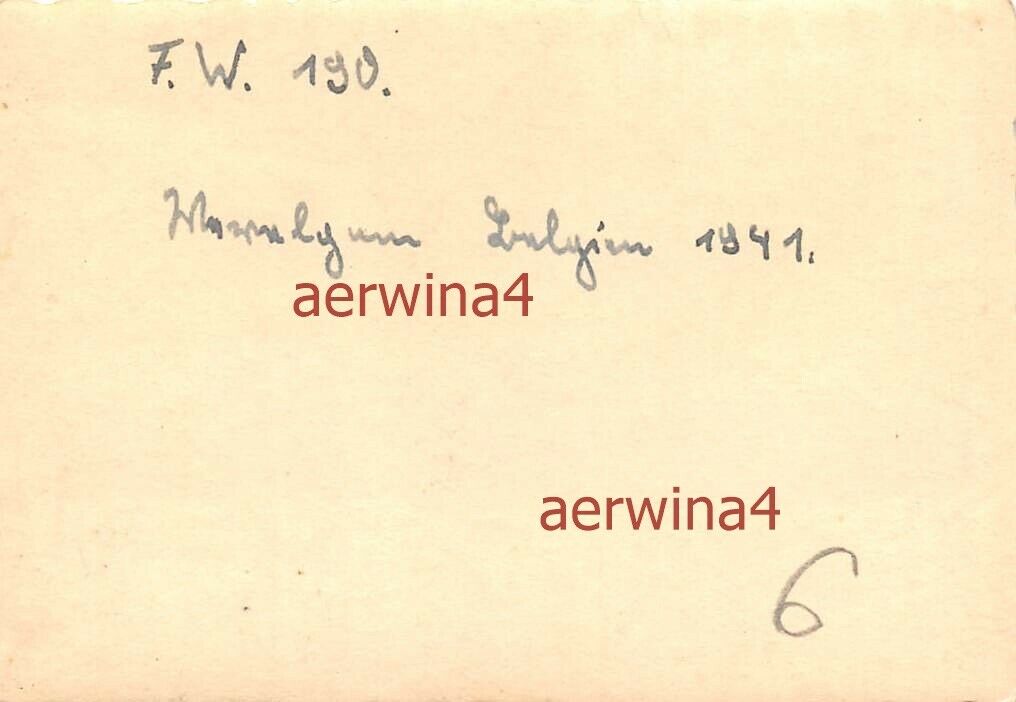 F. W. 190.
Wevelgem Belgien 1941.
aerwina4
aerwina4
6